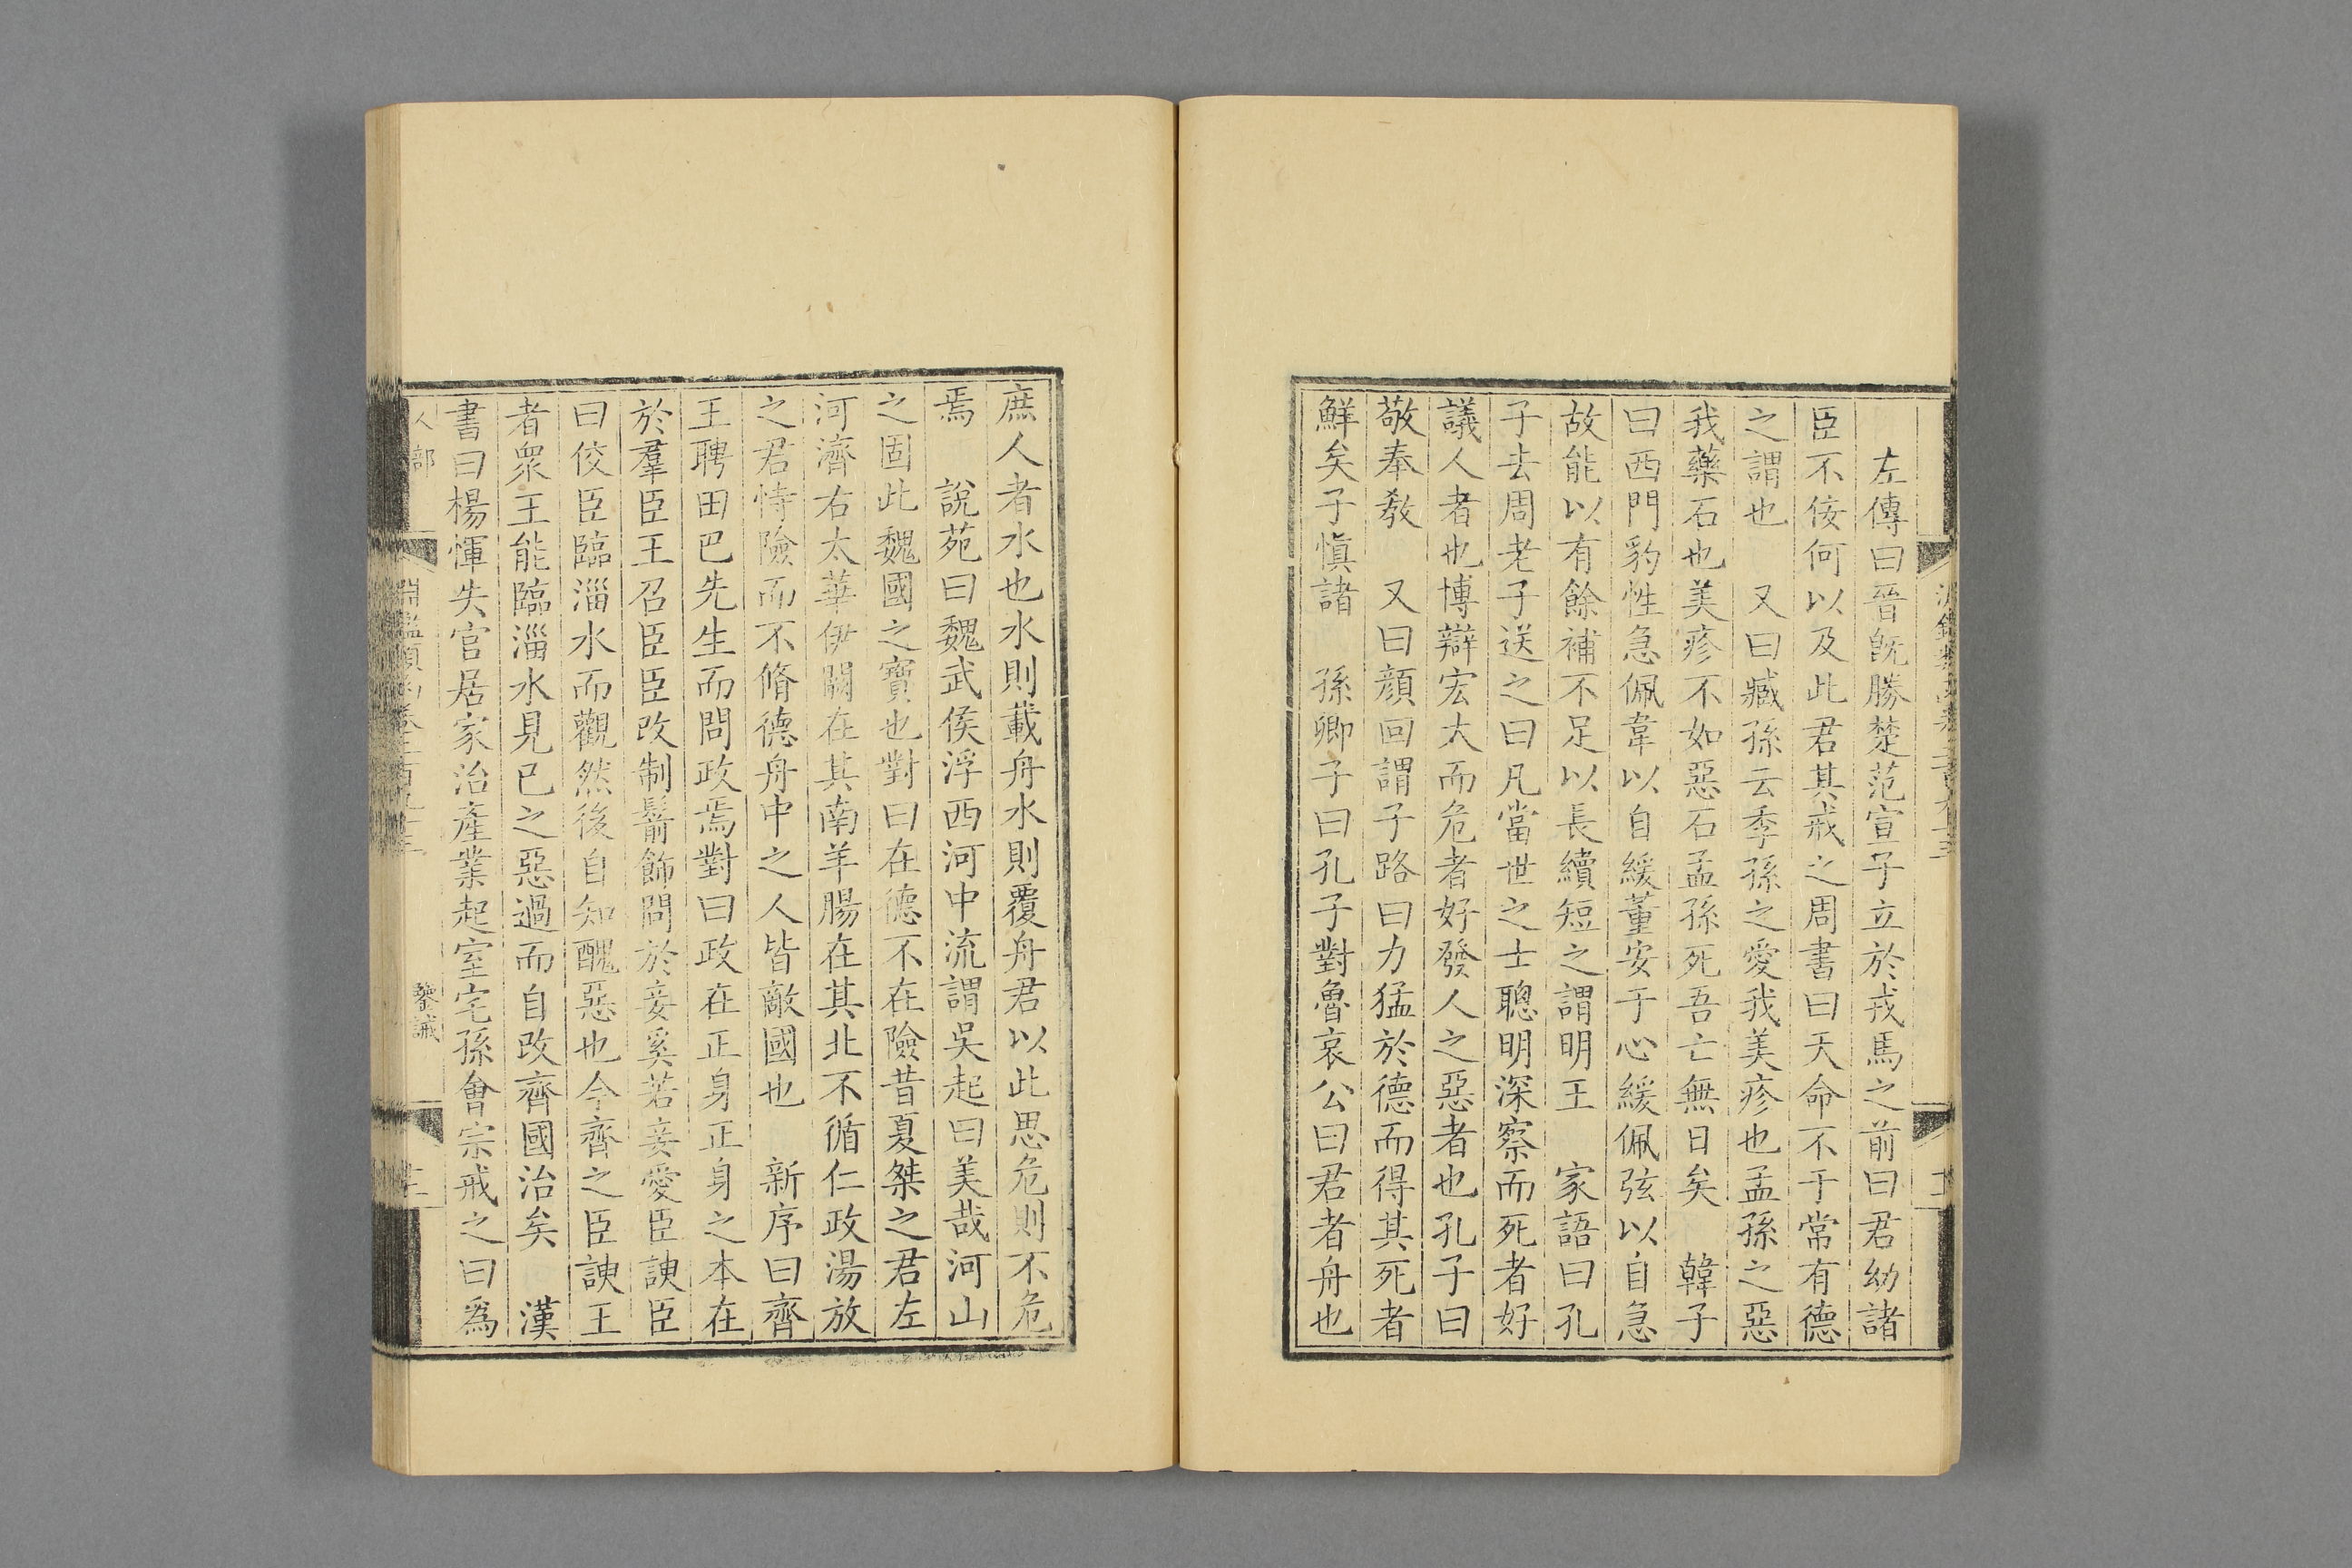 左傳曰晉旣勝楚范宣子立於戎馬之前曰君幼諸
臣不佞何以及此君其戒之周書曰天命不于常有德
之謂也 又曰臧孫云季孫之愛我美疹也孟孫之惡
我藥石也美疹不如惡石孟孫死吾亡無日矣 韓子
曰西門豹性急佩韋以自緩董安于心緩佩弦以自急
故能以有餘補不足以長續短之謂明王 家語曰孔
子去周老子送之曰凡當世之士聰明深察而死者好
議人者也博辯宏大而危者好發人之惡者也孔子曰
敬奉敎 又曰顏回謂子路曰力猛於德而得其死者
鮮矣子愼諸 孫卿子曰孔子對魯哀公曰君者舟也
庶人者水也水則載舟水則覆舟君以此思危則不危
焉 說苑曰魏武侯浮西河中流謂吳起曰美哉河山
之固此魏國之寶也對曰在德不在險昔夏桀之君左
河濟右太華伊闕在其南羊腸在其北不循仁政湯放
之君恃險而不脩德舟中之人皆敵國也 新序曰齊
王聘田巴先生而問政焉對曰政在正身正身之本在
於羣臣王召臣臣改制鬋飾問於妾奚若妾愛臣諛臣
曰佼臣臨淄水而觀然後自知醜惡也今齊之臣諛王
者衆王能臨淄水見已之惡過而自改齊國治矣 漢
書曰楊惲失官居家治產業起室宅孫會宗戒之曰爲
人部
淵鑑類函卷三百九十三
鑒誡